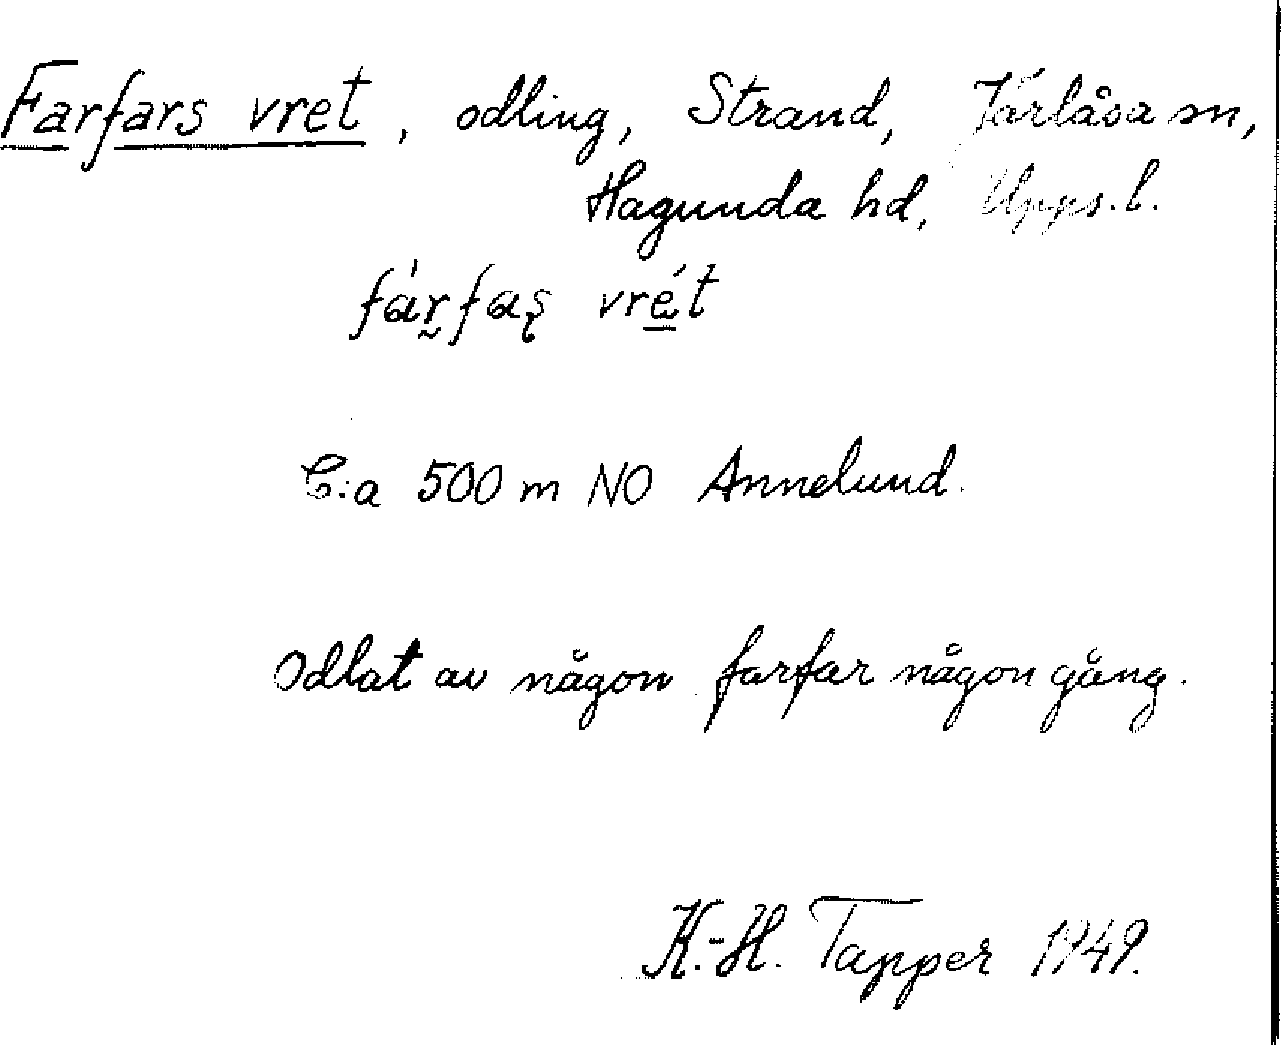 Farfars vret, odling, Strand, Järlåsa sn,
Hagunda hd, Upps. l.
fárfaʂ vrét
C:a 500 m NO Annelund.
Odlat av någon farfar någon gång.
K.-H. Tapper 1949.